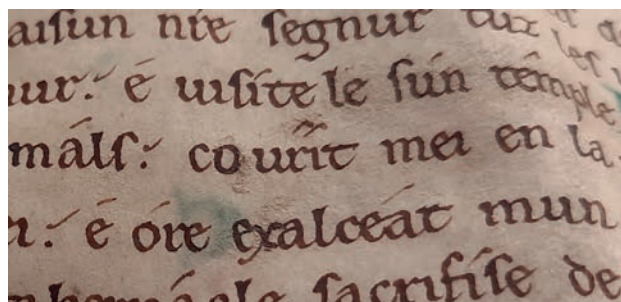 aiſun nr̄e ſegnur tuz les
ur. é uiſite le ſun témple
máls. co urit mei en la
é óre exalceát mun
ſacrifiſe de